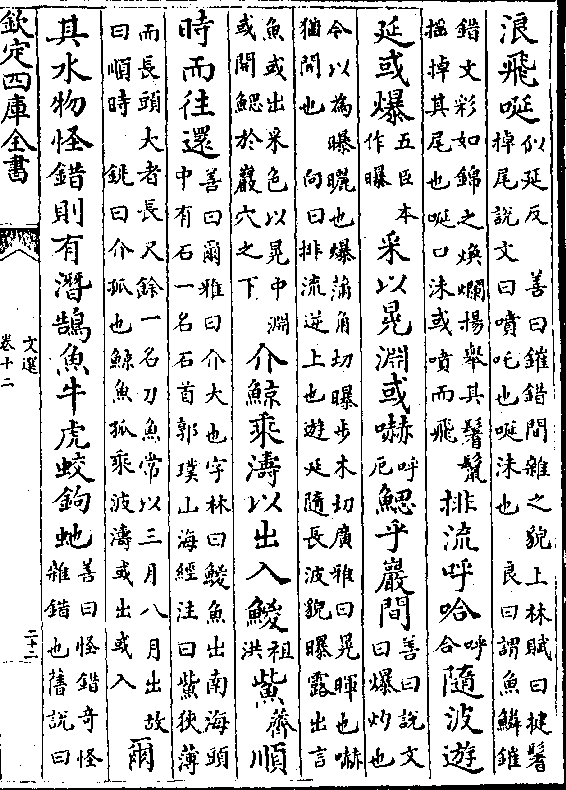 浪飛唌
似延反 善曰鏙錯間雜之貌上林賦曰揵鬐
掉尾說文曰噴吒也唌沫也 良曰謂魚鱗鏙
錯文彩如錦之煥爛揚舉其鬐鬣
揺掉其尾也唌口沫或噴而飛
排流呼哈
呼
合
隨波遊
延或爆
五臣本
作曝
采以晃淵或嚇
呼
厄
鰓乎巖間
善曰說文
曰爆灼也
令以為曝曬也爆蒲角切曝步木切廣雅曰晃暉也嚇
猶開也 向曰排流逆上也遊延隨長波貌曝露出言
魚或出采色以晃中淵
或開鰓於巖穴之下
介鯨乘濤以出入鯼
祖
洪
鮆
薺
順
時而往還
善曰爾雅曰介大也字林曰鯼魚出南海頭
中有石一名石首郭璞山海經注曰鮆狹薄
而長頭大者長尺餘一名刀魚常以三月八月出故
曰順時 銑曰介孤也鯨魚孤乘波濤或出或入
爾
其水物怪錯則有潛鵠魚牛虎蛟鉤虵
善曰怪錯奇怪
雜錯也舊說曰
欽定四庫全書
文選
卷十二
二十二